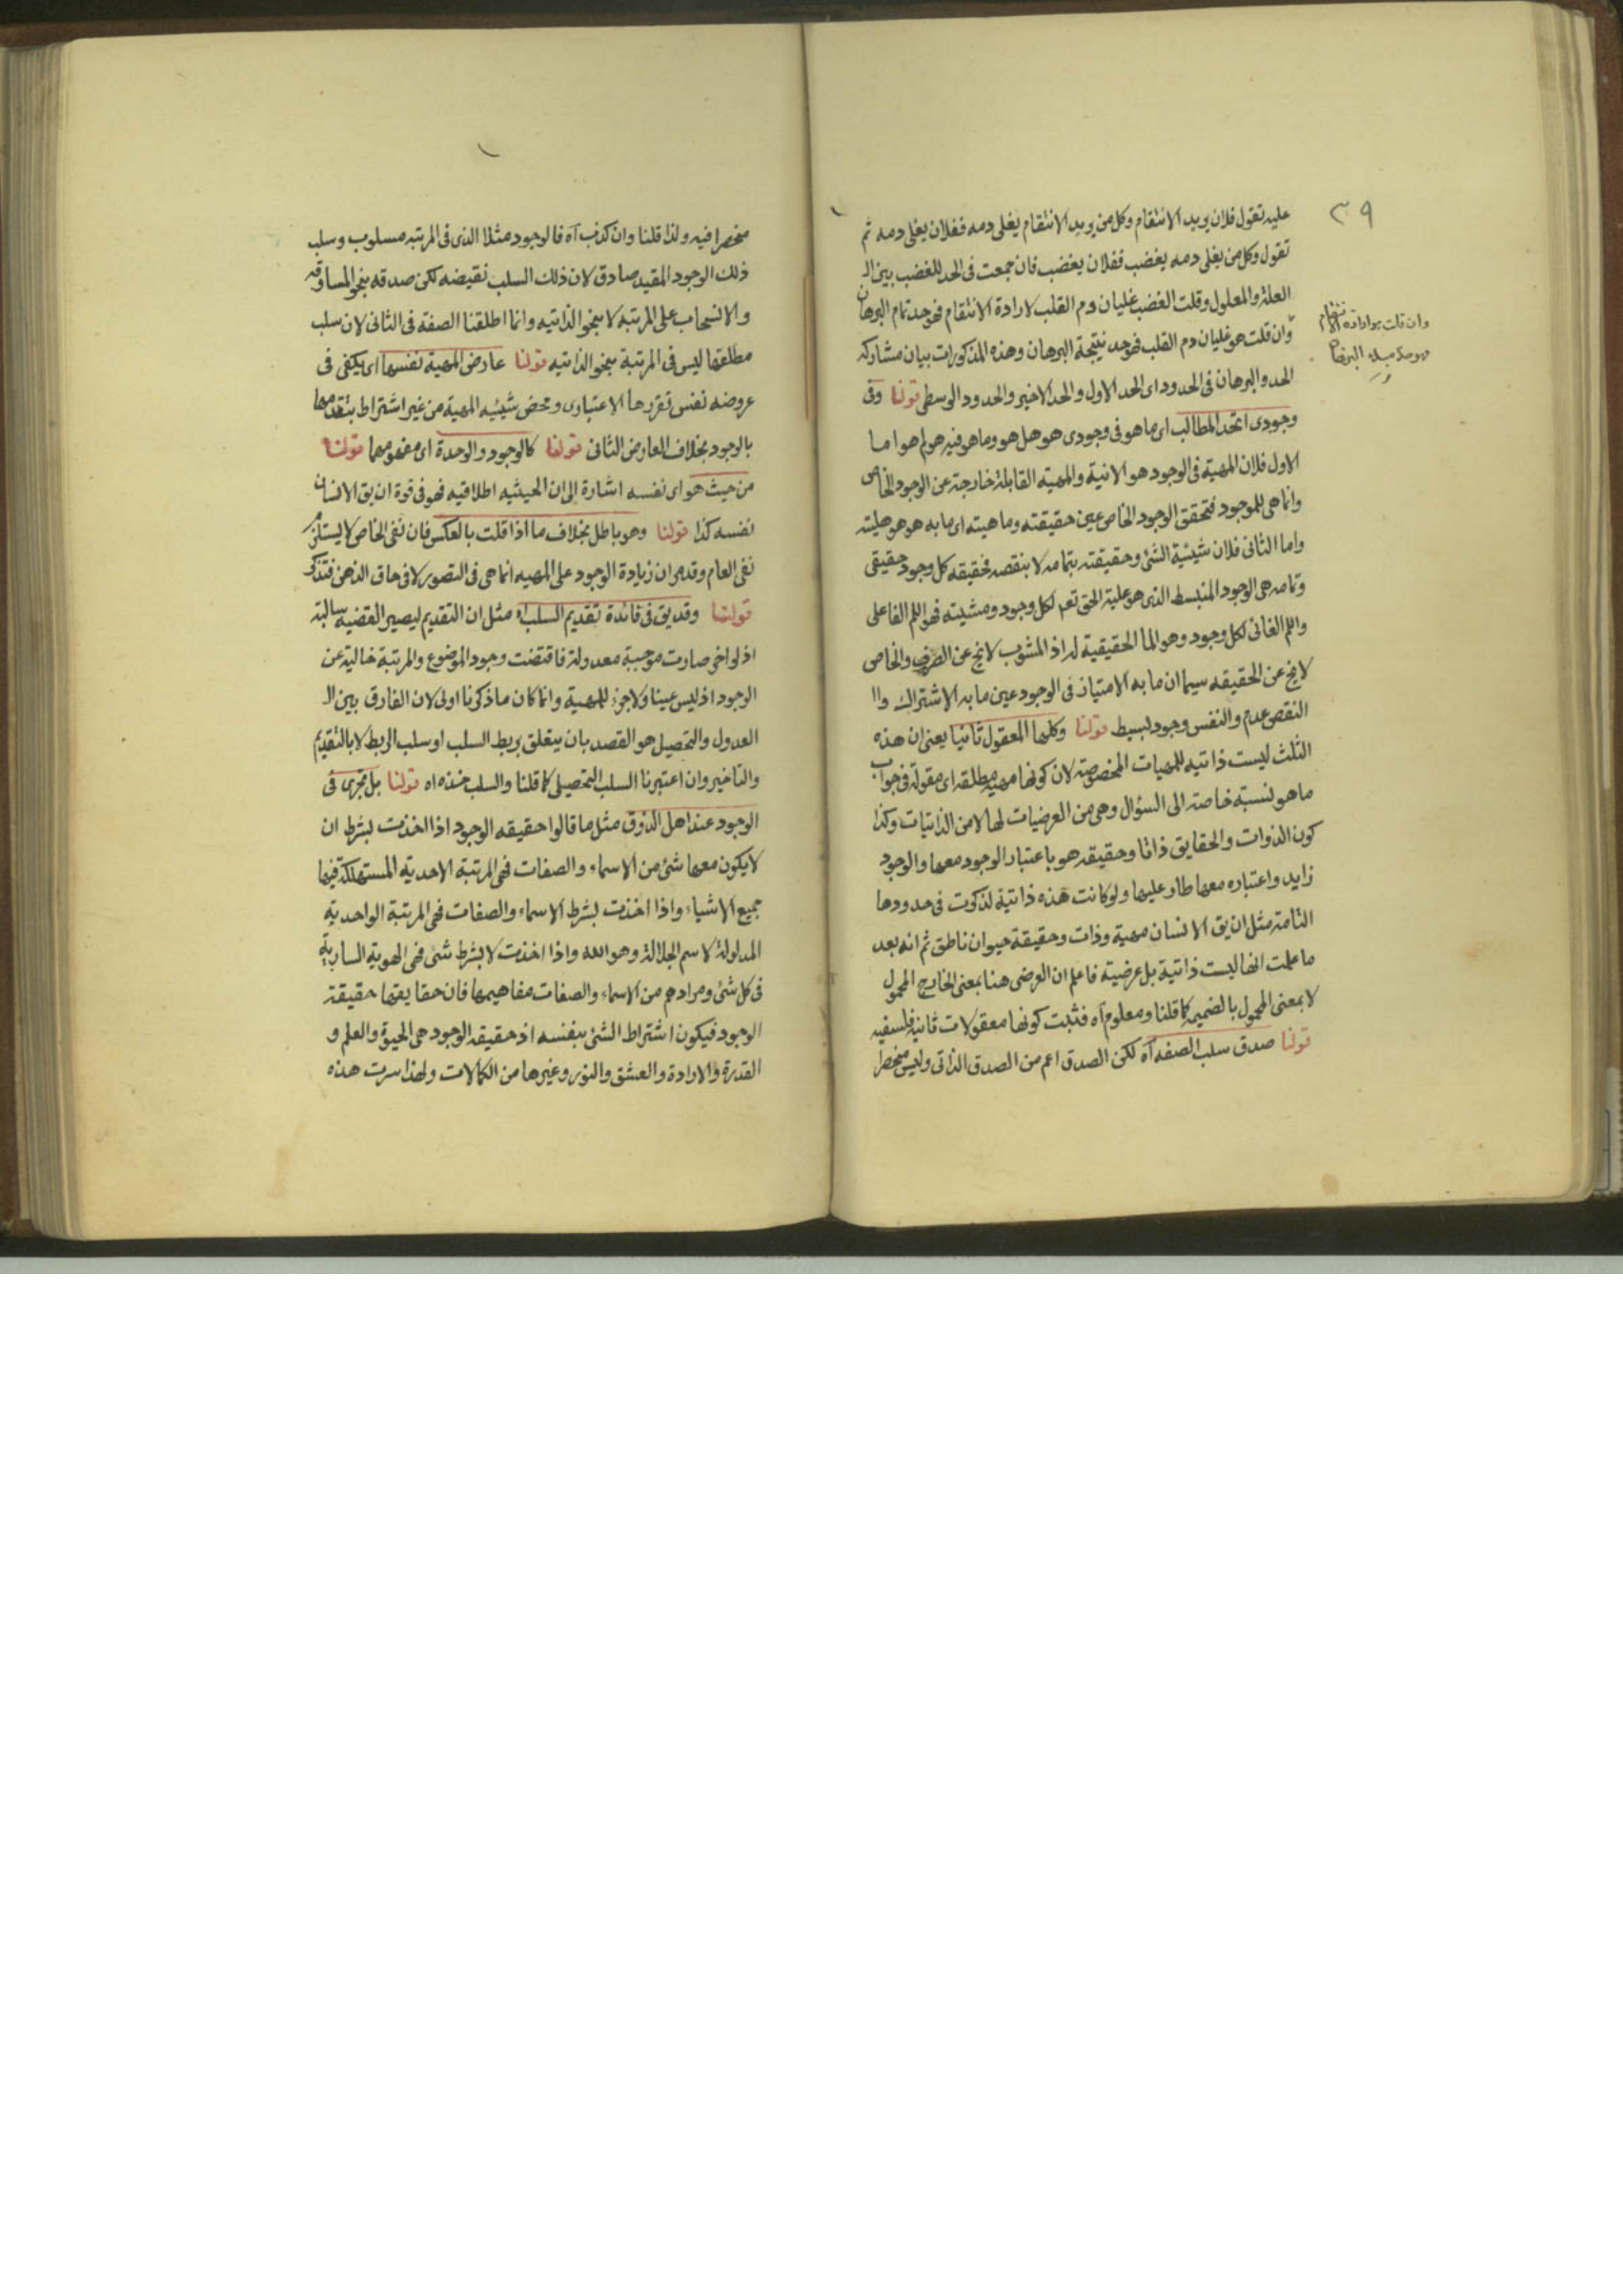 ٣٩
عليه تقول فلان يريد الانتقام وكل من يريد الانتقام يغلى دمه ففلان يغلى دمه ثم
تقول وكل من يغلى دمه يغضب ففلان يغضب فان جمعت فى الحد للغضب بين ال
العلة والمعلول وقلت الغضب غليان دم القلب لارادة الانتقام فهو حد تمام البرهان
وان قلت هو غليان دم القلب فهو حد نتيجة البرهان وهذه المذكورات بيان مشاركه
الحد والبرهان فى الحدود اى الحد الاول والحد الاخير والحدود الوسطى قولنا وفى
وجودى اتحد المطالب اى ما هو فى وجودى هو هل هو وما هو فيه هو لم هو اما
الاول فلان المهية فى الوجود هو الانية والمهية القابلة خارجة عن الوجود الخاص
وانما هى للموجود فتحقق الوجود الخاص عين حقيقته وماهيته اى ما به هو هو هليته
واما الثانى فلان شيئية الشئ وحقيقته بتمامه لا بنقصه فحقيقه كل وجود حقيقى
وتمامه هى الوجود المنبسط الذى هو علية الحق تعم لكل وجود ومشيته فهو اللم الفاعلى
واللم الغائى لكل وجود وهو الما الحقيقية له اذ المشوب لا يخ عن الصرف والخاص
لا يخ عن الحقيقه سيما ان ما به الامتياز فى الوجود عين ما به الاشتراك وال
النقص عدم والنفس وجود بسيط قولنا وكلها المعقول ثانيا يعنى ان هذه
الثلث ليست ذاتيه للمهيات المخصوصة لان كونها مهيه مطلقه اى مقولة فى جواب
ما هو لنسبة خاصة الى السؤال وهى من العرضيات لها لا من الذاتيات وكذا
كون الذوات والحقايق ذاتا وحقيقه هو باعتبار الوجود معها والوجود
زايد واعتباره معها طار عليها ولو كانت هذه ذاتية لذكرت فى حدودها
التامة مثل ان يق الانسان مهية وذات وحقيقة حيوان ناطق ثم انه بعد
ما علمت انها ليست ذاتية بل عرضية فاعلم ان العرضى هنا بمعنى الخارج المحمول
لا بمعنى المحمول بالضميمه كما قلنا ومعلوم آه فثبت كونها معقولات ثانية فلسفيه
قولنا صدق سلب الصفه آه لكن الصدق اعم من الصدق الذاتى وليس منحصرا
وان قلت هو ارادة الانتقام
البرهان
منحصرا فيه ولذا قلنا وان كذب آه فالوجود مثلا الذى فى المرتبه مسلوب وسلب
ذلك الوجود المقيد صادق لان ذلك السلب نقيضه لكن صدقه بنحو المساوقه
والانسحاب على المرتبه لا بنحو الذاتيه وانما اطلقنا الصفه فى الثانى لان سلب
مطلقها ليس فى المرتبة بنحو الذاتيه قولنا عارض المهية نفسها اى يكفى فى
عروضه نفس تقررها الاعتبارى ومحض شيئيه المهية من غير اشتراط بتقدمها
بالوجود بخلاف العارض الثانى قولنا كالوجود والوحدة اى مفهومهما قولنا
من حيث هو اى نفسه اشارة الى ان الحيثيه اطلاقيه فهو فى قوة ان يق الانسان
نفسه كذا قولنا وهو باطل بخلاف ما اذا قلت بالعكس فان نفى الخاص لا يستلزم
نفى العام وقد مر ان زيادة الوجود على المهيه انما هى فى التصور لا فى حاق الذهن فتذكر
قولنا وقد يق فى فائدة تقديم السلب آه مثل ان التقديم ليصير القضيه سالبة
اذ لو اخر صارت موجبة معدولة فاقتضت وجود الموضوع والمرتبة خالية عن
الوجود اذ ليس عينا ولا جزء للمهية وانما كان ما ذكرنا اولى لان الفارق بين ال
العدول والتحصيل هو القصد بان يتعلق بربط السلب او سلب الربط لا بالتقديم
والتاخير وان اعتبرنا السلب التحصيلى كما قلنا والسلب خذه اه قولنا بل تجرى فى
الوجود عند اهل الذوق مثل ما قالوا حقيقه الوجود اذا اخذت بشرط ان
لا يكون معها شئ من الاسماء والصفات فهى المرتبة الاحدية المستهلكة فيها
جميع الاشياء واذا اخذت بشرط الاسماء والصفات فهى المرتبة الواحدية
المدلولة لاسم الجلالة وهو الله واذا اخذت لا بشرط شئ فهى الهوية السارية
فى كل شئ ومرادهم من الاسماء والصفات مفاهيمها فان حقايقها حقيقة
الوجود فيكون اشتراط الشئ بنفسه اذ حقيقه الوجود هى الحيوة والعلم و
القدرة والارادة والعشق والنور وغيرها من الكمالات ولهذا سرت هذه